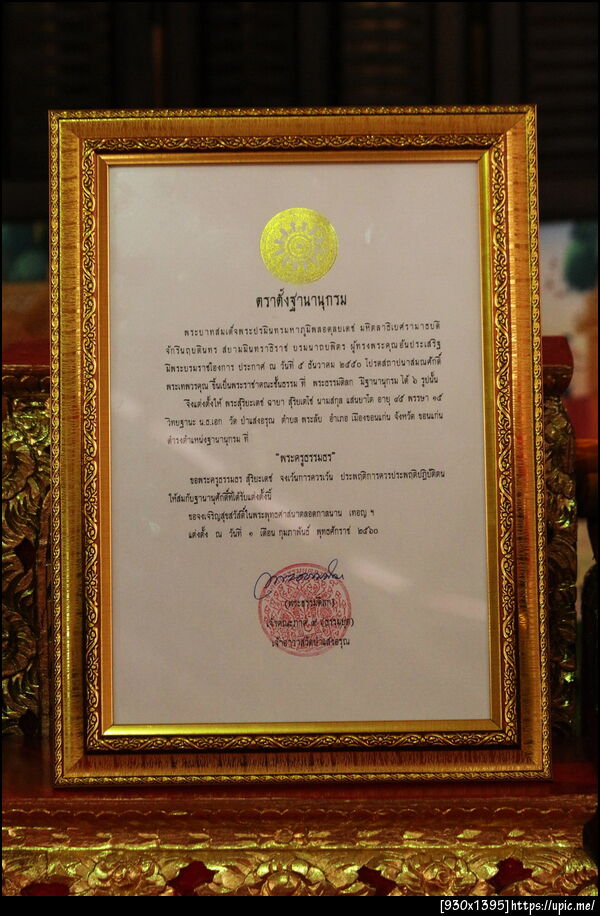 ตราตั้งฐานานุกรม
พระบาทสมเด็จพระปรมินทรมหาภูมิพลอดุลยเดช มหิตลาธิเบศรามาธบดี
จักรีนฤบดินทร สยามมินทราธิราช บรมนาถบพิตร ผู้ทรงพระคุณอันประเสริฐ
มีพระบรมราชโองการ ประกาศ ณ วันที่ ๕ ธันวาคม ๒๕๕๐ โปรดสถาปนาสมณศักดิ์
พระเทพวรคุณ ขึ้นเป็นพระราชาคณะชั้นธรรม ที่ พระธรรมดิลก มีฐานานุกรม ได้ ๖ รูปนั้น
จึงแต่งตั้งให้ พระสุริยะเดช ฉายา สุริยเตโช นามสกุล แสนยาโต อายุ ๔๕ พรรษา ๑๕
วิทยฐานะ น.ธ.เอก วัด ป่าแสงอรุณ ตำบล พระลับ อำเภอ เมืองขอนแก่น จังหวัด ขอนแก่น
ดำรงตำแหน่งฐานานุกรม ที่
"พระครูธรรมธร"
ขอพระครูธรรมธร สุริยะเดช จงเว้นการควรเว้น ประพฤติการควรประพฤติปฏิบัติตน
ให้สมกับฐานานุศักดิ์ที่ได้รับแต่งตั้งนี้
ขอจงเจริญสุขสวัสดิ์ในพระพุทธศาสนาตลอดกาลนาน เทอญ ฯ
แต่งตั้ง ณ วันที่ ๑ เดือน กุมภาพันธ์ พุทธศักราช ๒๕๖๐
(พระธรรมดิลก)
เจ้าคณะภาค ๙ (ธรรมยุต)
เจ้าอาวาสวัดป่าแสงอรุณ
[930x1395]https://upic.me/